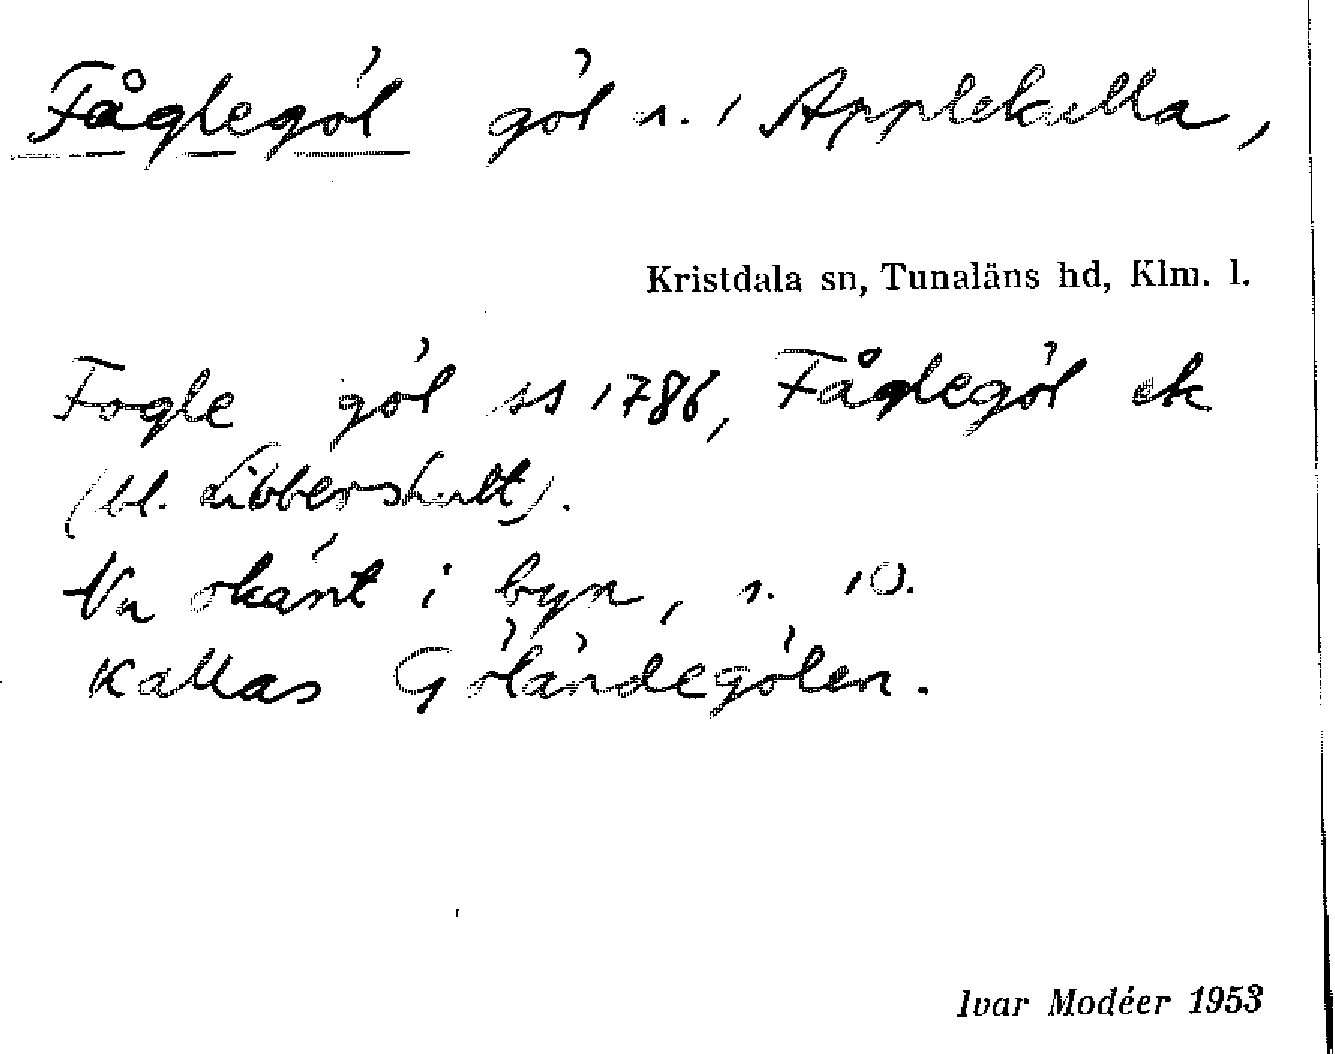 Fåglegöl göl n. i Applekulla,
Kristdala sn, Tunaläns hd, Klm. l.
Fogle göl ss 1786, Fåglegöl ek
(bl. Libbershult).
Nu okänt i byn, s. 10.
Kallas Göländegölen.
Ivar Modéer 1953